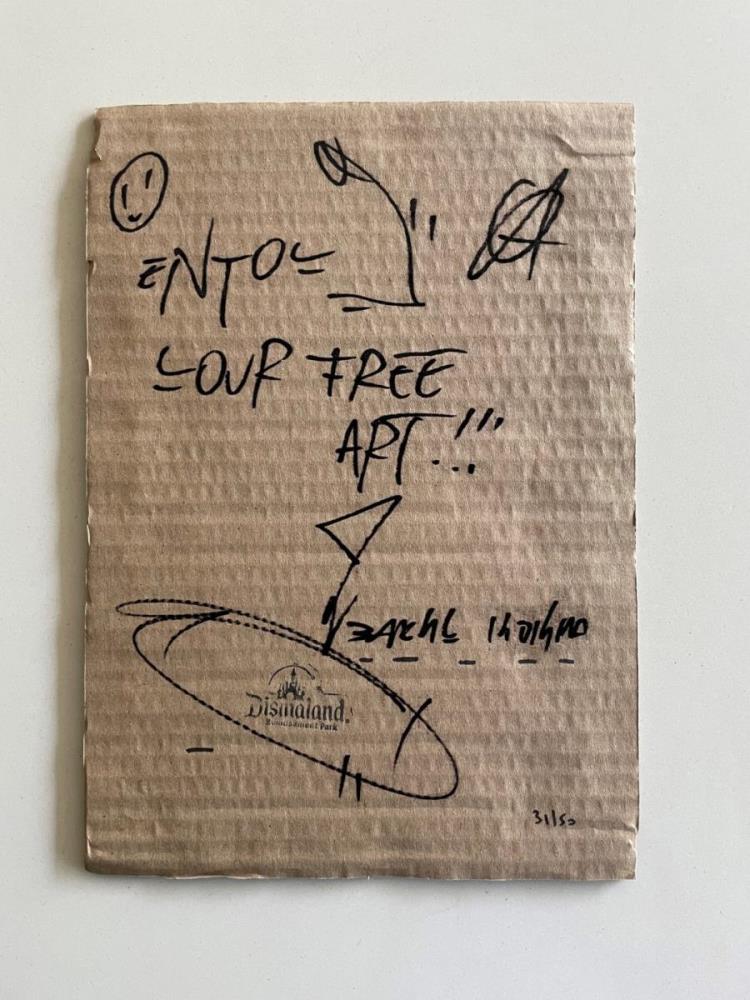 ENJOY
YOUR FREE
ART...!!!
Dismaland
Bemusement Park
31/50